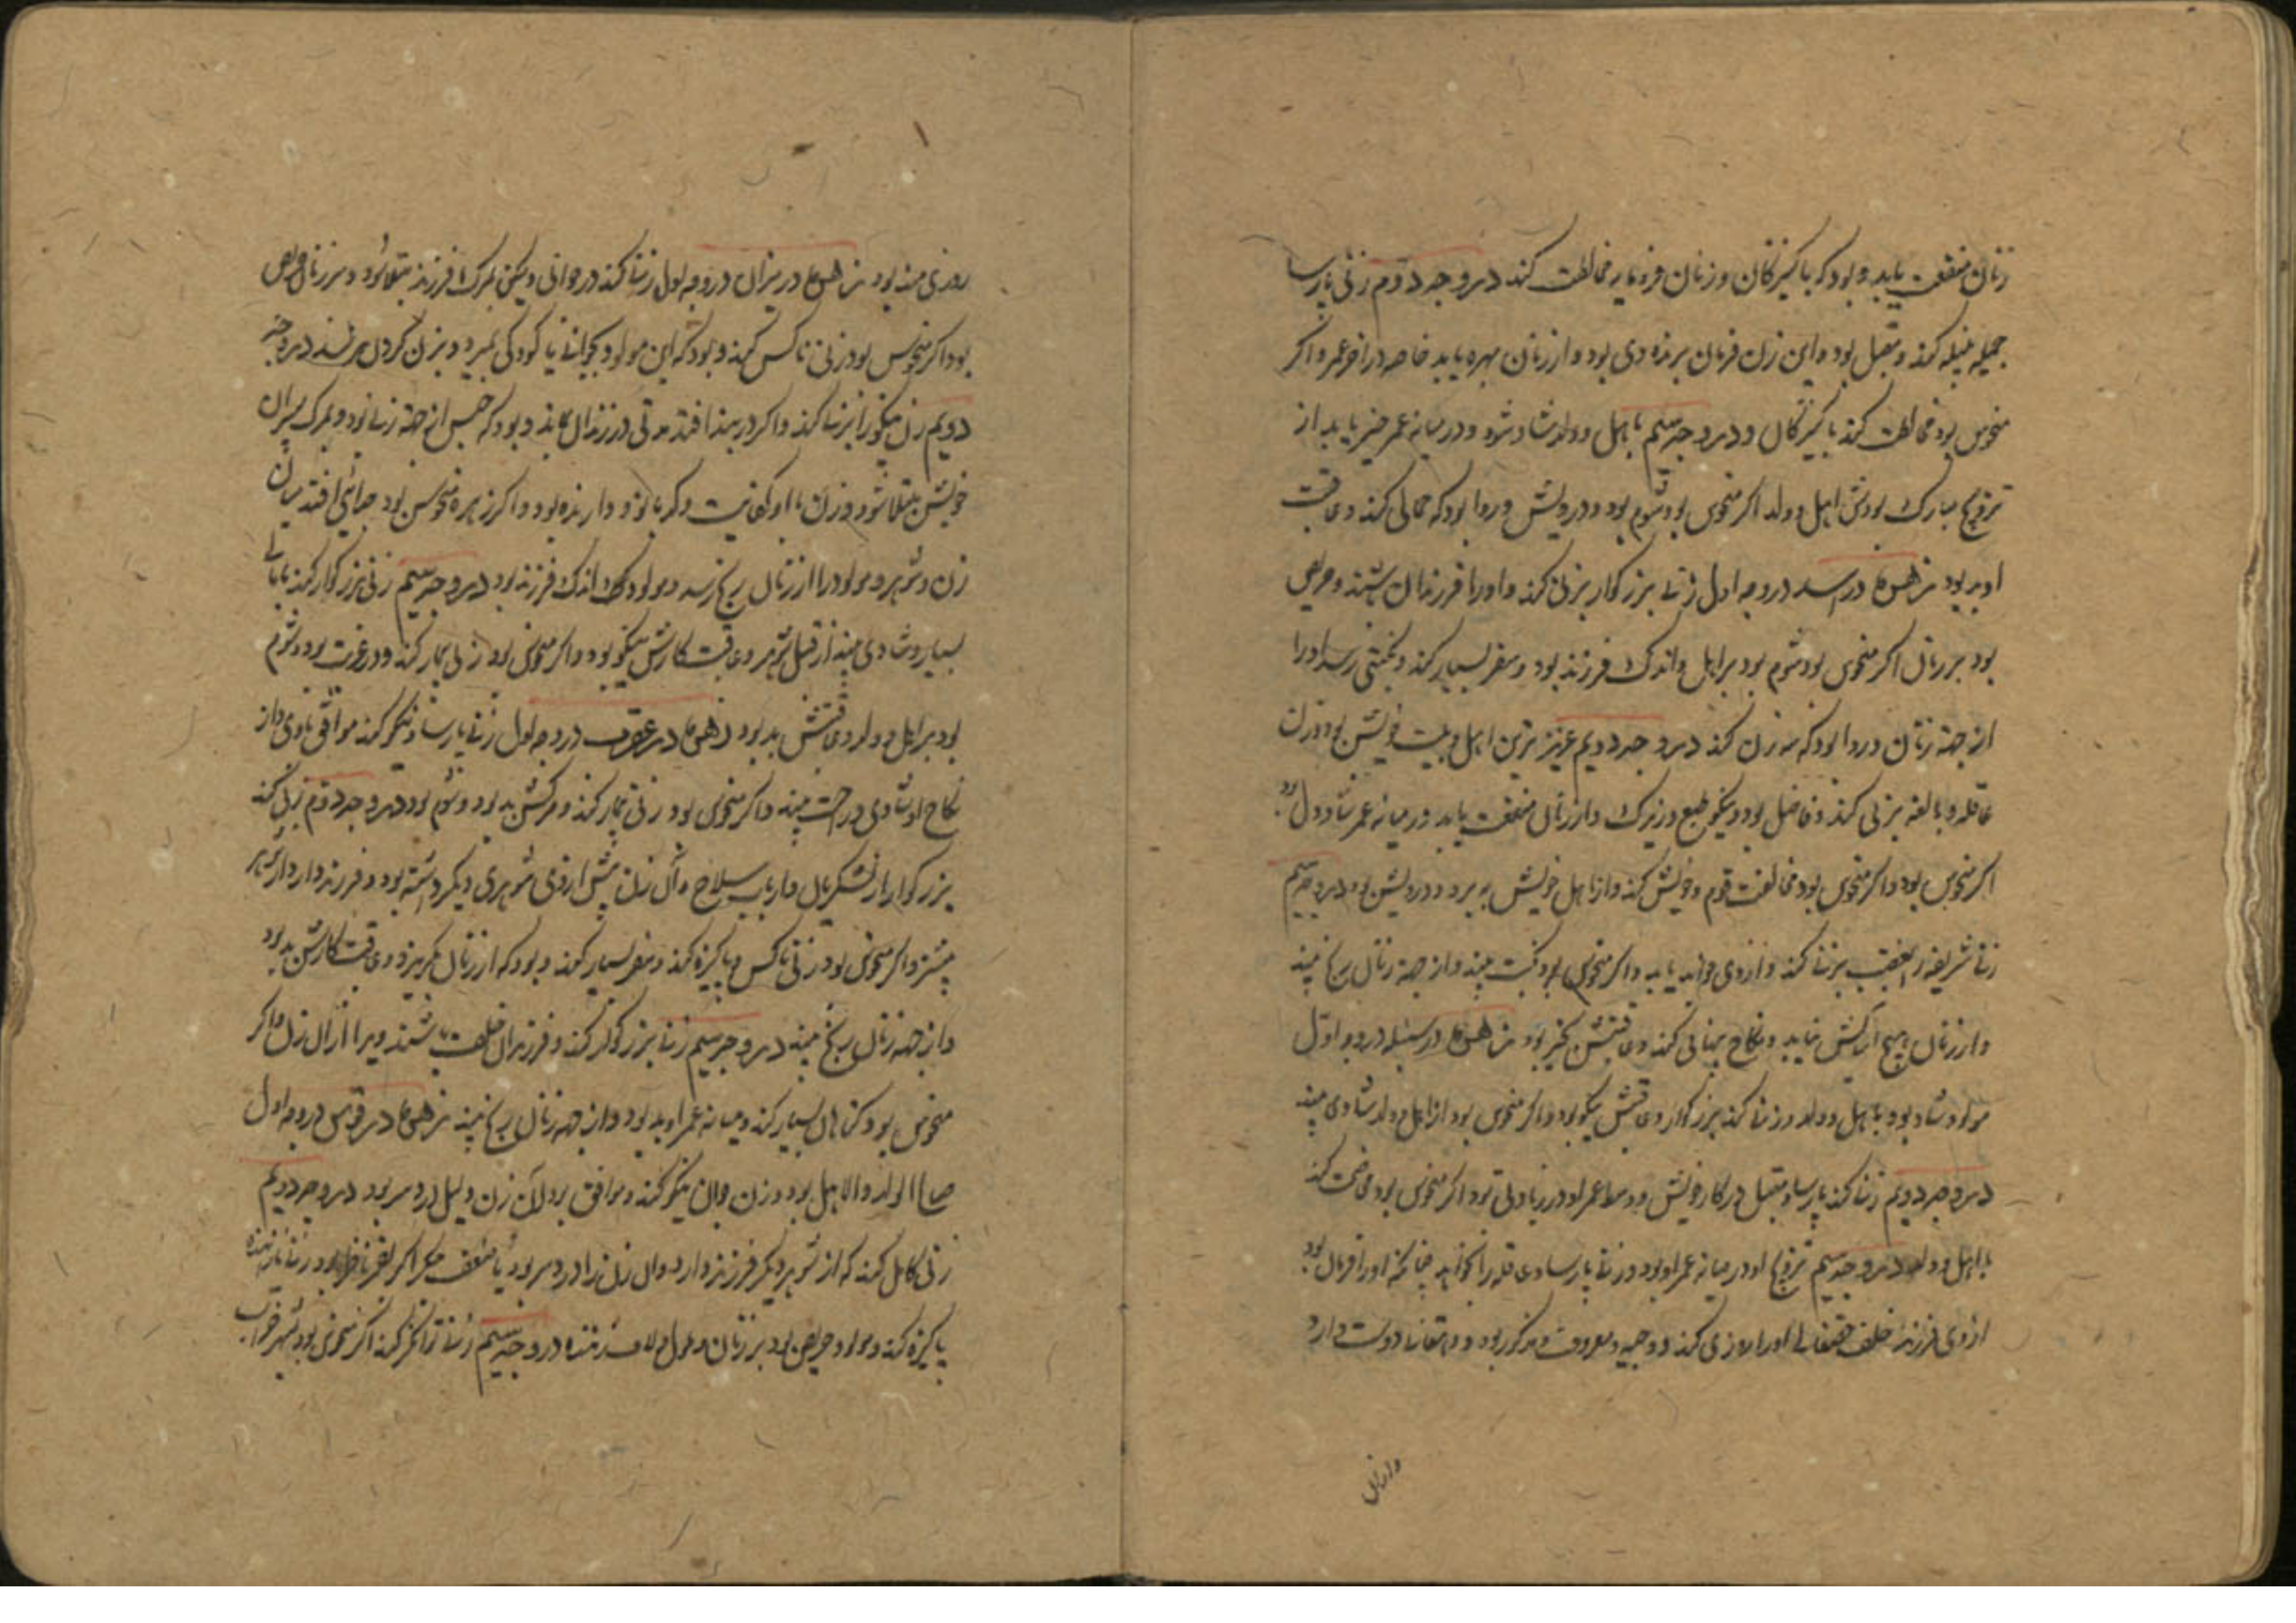 زنان منفعت یابد و بود که با کنیزکان و زنان فرومایه مخالطت کند در وجه دوم زنی پارسا
جمیله کند و مقبل بود و این زن فرمان برنده وی بود و از زنان بهره یابد خاصه در آخر عمر و اگر
منحوس بود مخالطت کند با کنیزکان و در وجه سیم با اهل و ولد شاد شود و در میانه عمر خیر یابد از
تزویج مبارک بودش اهل و ولد اگر منحوس بود شوم بود و درویش و روا بود که کند و عاقبت
او بد بود زهره در اسد در وجه اول زنی بزرگوار بزنی کند و او را فرزندان باشند و حریص
بود بر زنان اگر منحوس بود شوم بود بر اهل و اندک فرزند بود و سفر بسیار کند و نکبتی رسد او را
از جهة زنان و روا بود که سه زن کند در وجه دویم عزیزترین اهل بیت خویش بود و زن
عاقله و بالغه بزنی کند و فاضل بود و نیکو طبع و زیرک و از زنان منفعت یابد و در میانه عمر شاد دل بود
اگر منحوس بود و اگر منحوس بود مخالفت قوم خویش کند و از اهل خویش ببرد و درویش بود در وجه سیم
زنی شریفه بزنی کند و از وی فواید یابد و اگر منحوس بود نکبت بیند و از جهة زنان رنج بیند
و از زنان هیچ آسایش نیابد و نکاح پنهانی کند و عاقبتش بخیر بود زهره در سنبله در وجه اول
مولود شاد بود باهل و ولد و زنی کند بزرگوار و عاقبتش نیکو بود و اگر منحوس بود از اهل و ولد شادی نبیند
در وجه دویم زنی کند پارسا و مقبل در کار خویش و وسط عمر او در زیادتی بود و اگر منحوس بود مخاصمت کند
با اهل و ولد در وجه سیم تزویج او در میانه عمر او بود و زنی پارسا و عاقله را بخواهد چنانکه او را فرمان بود
از وی فرزند خلف حقتعالی او را روزی کند و وجیه و معروف و مذکور بود و دهقانی دوست دارد
و از زنان
روزی مند بود زهره در میزان در وجه اول زنی کند در جوانی ولیکن بمرگ فرزند مبتلا شود و بر زنان حریص
بود اگر منحوس بود زنی ناکس کند و بود که این مولود بجوانی یا کودکی بمیرد و بزن کردن نرسد در وجه
دویم زن نیکو را بزنی کند و اگر در بند افتد مدتی در زندان بماند و بود که حبس از جهة زنی بود و بمرگ پسران
خویش مبتلا شود و زن با او و کدبانو دارنده بود و اگر زهره منحوس بود جدائی افتد میان
زن و شوهر و مولود را از زنان رنج رسد و مولود اندک فرزند بود در وجه سیم زنی بزرگوار کند
بسیار و شادی بیند از قبل شوهر و عاقبت کارش نیکو بود و اگر منحوس بود زنی بیمار کند و در غربت بود و شوم
بود بر اهل و ولد و عاقبتش بد بود زهره در عقرب در وجه اول زنی پارسا و نیکو کند موافق با وی و از
نکاح او شادی و راحت بیند و اگر منحوس بود زنی بیمار کند و مرگش بد بود و شوم بود در وجه دوم زنی کند
بزرگوار از لشکریان و ارباب سلاح و آن زن پیش از وی شوهری دیگر داشته بود و فرزند دارد از شوهر
پیشتر و اگر منحوس بود زنی ناکس و ناپاکیزه کند و سفر بسیار کند و بود که از زنان بگریزد و عاقبت کارش بد بود
و از جهة زنان رنج بیند در وجه سیم زنی بزرگوار کند و فرزندان خلف باشند ویرا از آن زن و اگر
منحوس بود گناهان بسیار کند و میانه عمر او بد بود و از جهة زنان رنج بیند زهره در قوس در وجه اول
صاحب الولد والاهل بود و زن جوان نیکو کند و موافق بود
زنی کامل کند که از شوهر دیگر فرزند دارد
پاکیزه کند و مولود حریص بود بر زنان در وجه سیم زنی توانگر کند اگر منحوس بود